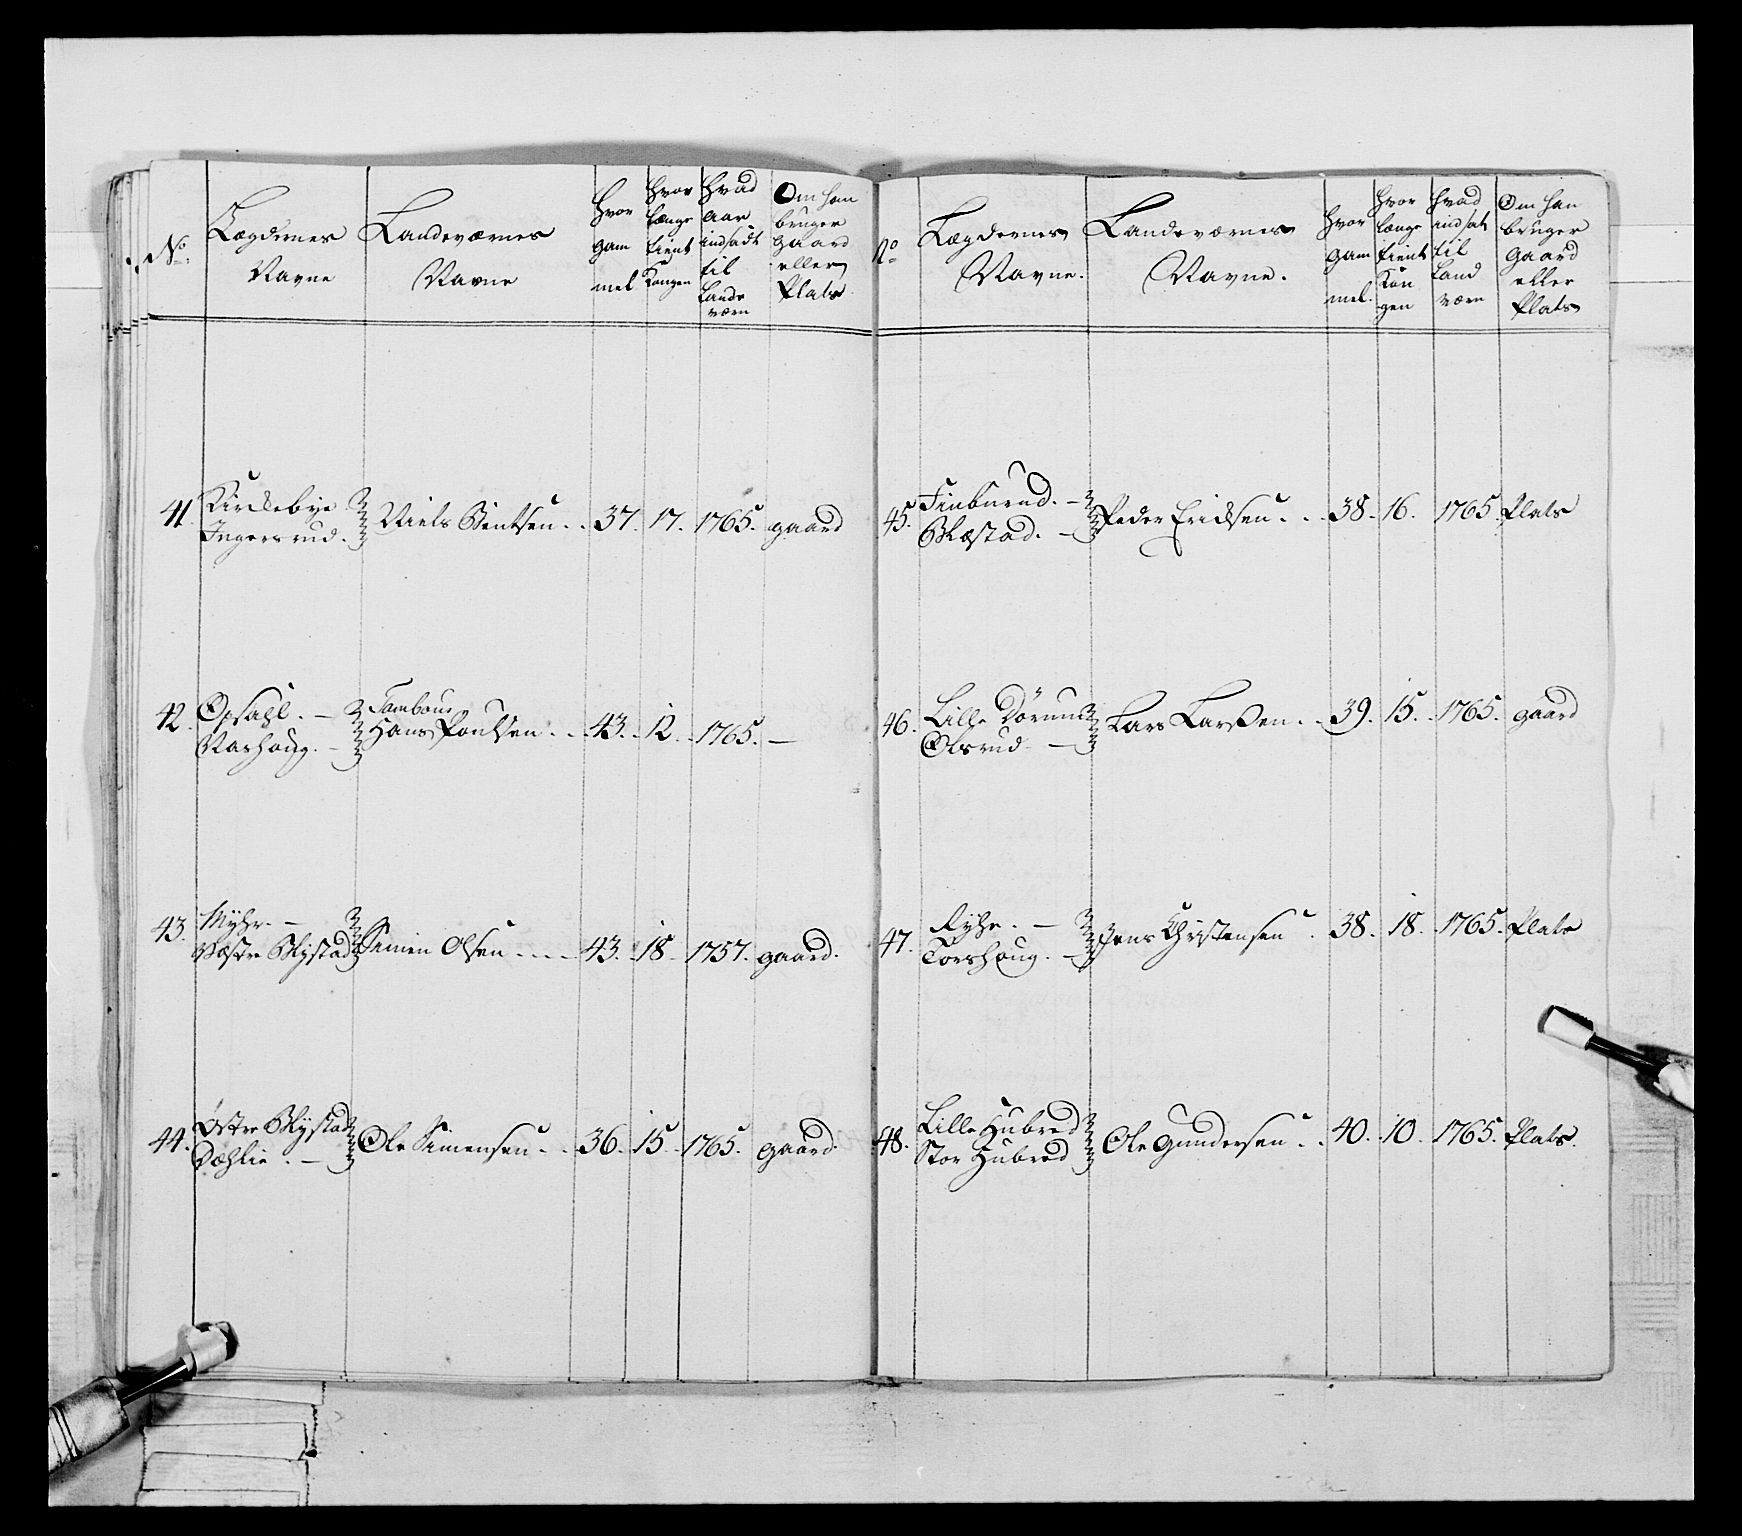 No:
Lægdernes
Navne
Landeværnes
Navne
Hvor
gam
mel
Hvor
længe
tient
Kongen
Hvad
aar
indsadt
til
Lande
værn
Om han
bruger
gaard
eller
Plats
41. Kirckebye
Ingersrud. Niels Bentsen. . 37. 17. 1765. gaard
42. Opsahl. — Tambour
Nashoug. — Hans Poulsen. . . 43. 12. 1765. —
43. Myhr. —
Væstre Skystad Simen Olsen . . . . 43. 18. 1757. gaard.
44. Østre Skystad
Dæhlie. — Ole Simensen. . 36. 15. 1765. gaard.
No
Lægdernes
Navne.
Landeværnes
Navne.
Hvor
gam
mel.
Hvor
længe
tient
Kon
gen
Hvad
indsat
til
Land
værn
Om han
bruger
gaard
eller
Plats
45. —
Skæstad. — Peder Ericksen. . . 38. 16. 1765. Plats
46. Lille Dørum
Olsrud. — Lars Larssen. . 39. 15. 1765. gaard
47. Ryhe. —
Torshoug. — Jens Christensen . 38. 18. 1765. Plats
48. Lille Hubred
Stor Hubred Ole Gundersen. . 40. 10. 1765. Plats.